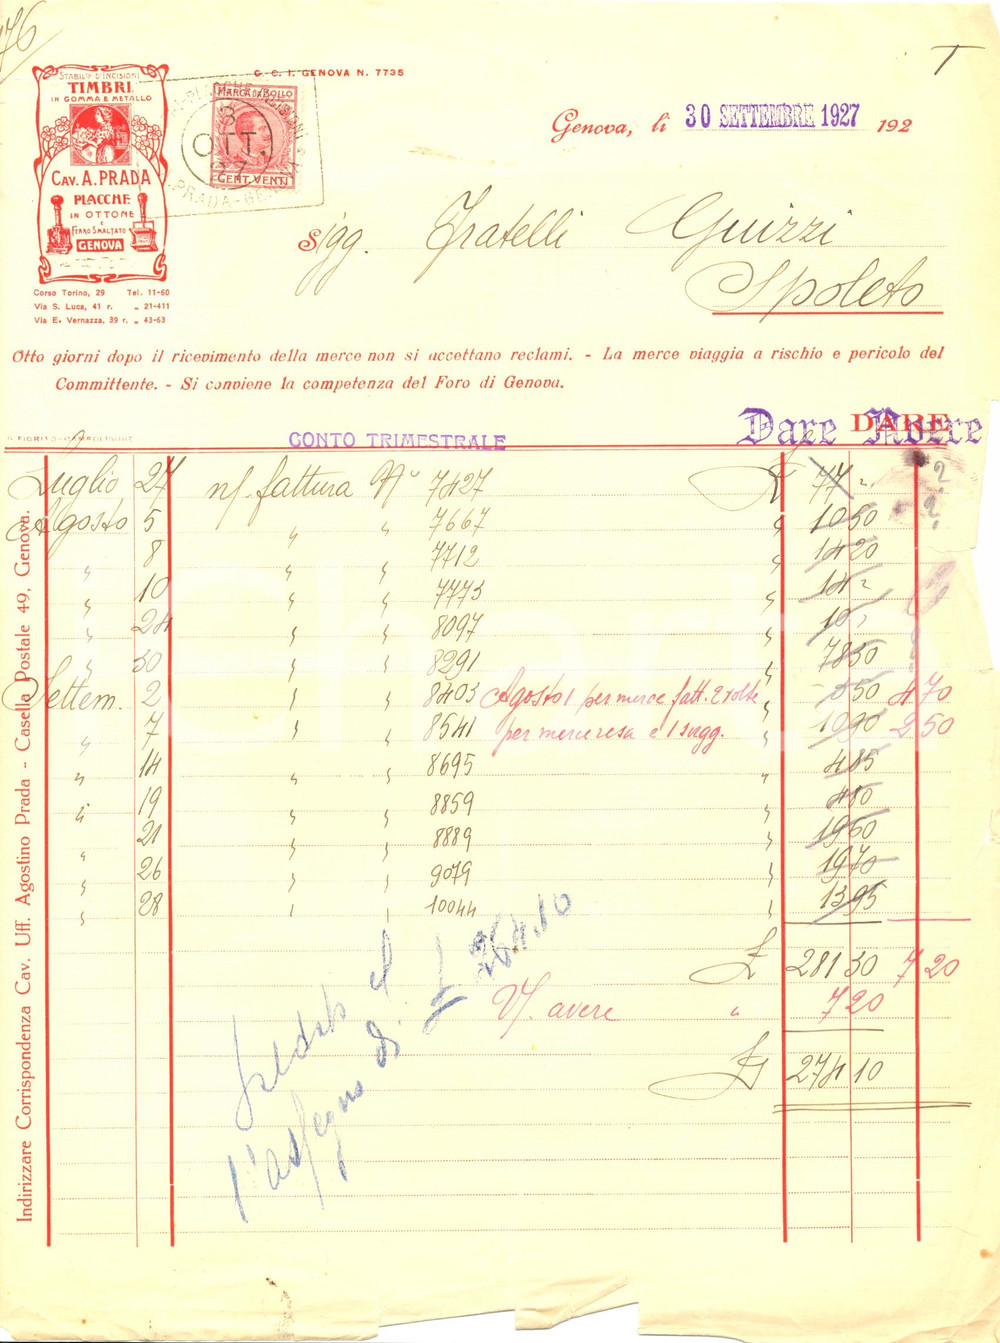 76
C. C. I. GENOVA N. 7735
STABIL.TO D'INCISIONI
TIMBRI
IN GOMMA E METALLO
CAV. A. PRADA
PLACCHE
IN OTTONE
E
FERRO SMALTATO
GENOVA
Corso Torino, 29 Tel. 11-60
Via S. Luca, 41 r. „ 21-411
Via E. Vernazza, 39 r. „ 43-63
MARCA DA BOLLO
3
OTT.
27
CENT. VENTI
PRADA - GENOVA
Genova, lì 30 SETTEMBRE 1927 192
Sigg. Fratelli Guizzi
Spoleto
Otto giorni dopo il ricevimento della merce non si accettano reclami. - La merce viaggia a rischio e pericolo del
Committente. - Si conviene la competenza del Foro di Genova.
CONTO TRIMESTRALE Dare DARE Avere
Luglio 27 n/. fattura N° 7427 £ 77 "
Agosto 5 " " 7667 " 10 50
" 8 " " 7712 " 14 20
" 10 " " 7773 " 14 "
" 24 " " 8097 " 10 "
" 30 " " 8291 " 78 30
Settem. 2 " " 8403 Agosto 1 per merce fatt. 2 volte " 50 4 70
" 7 " " 8541 per merce resa e 1 sugg. " 10 90 2 50
" 14 " " 8695 " 4 85
" 19 " " 8859 " 4 80
" 21 " " 8889 " 19 60
" 26 " " 9079 " 19 70
" 28 " " 10044 " 13 95
£ 281 30 7 20
V/. avere " 7 20
£ 274 10
l'assegno di £ 264.10
Indirizzare Corrispondenza Cav. Uff. Agostino Prada - Casella Postale 49, Genova.